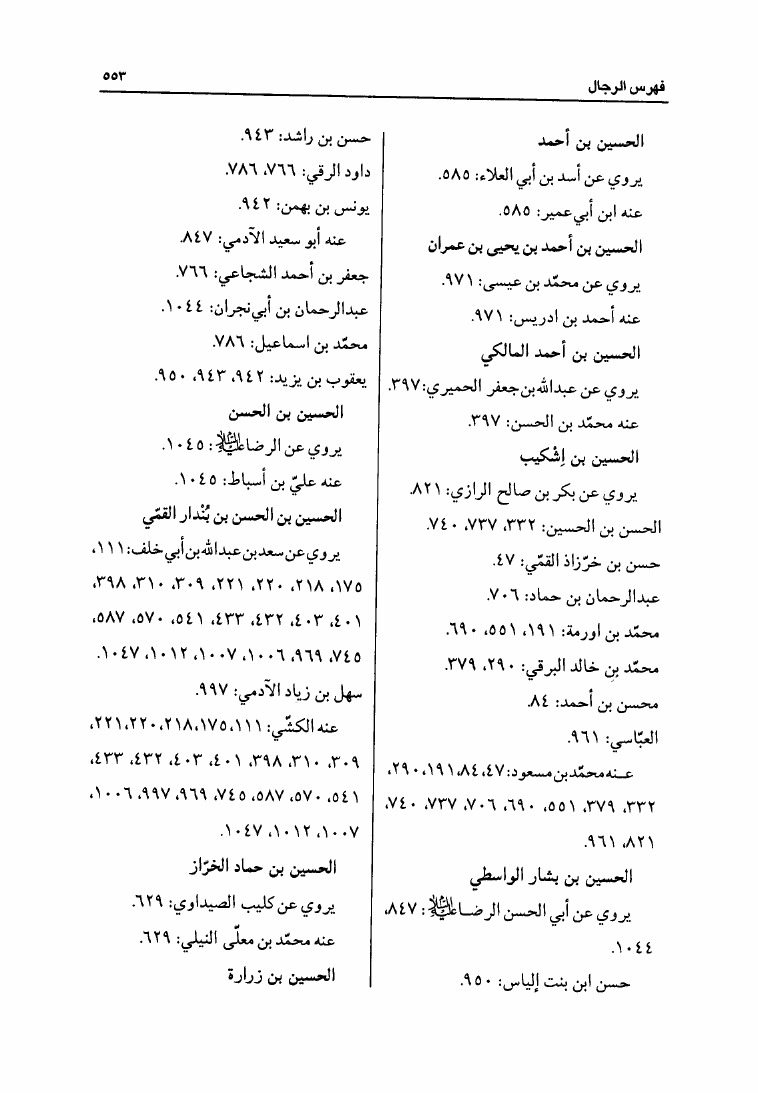 فهرس الرجال
٥٥٣
الحسين بن أحمد
يروي عن أسد بن أبي العلاء: ٥٨٥.
عنه ابن أبي عمير: ٥٨٥.
الحسين بن أحمد بن يحيى بن عمران
يروي عن محمّد بن عيسى: ٩٧١.
عنه أحمد بن ادريس: ٩٧١.
الحسين بن أحمد المالكي
يروي عن عبدالله بن جعفر الحميري: ٣٩٧.
عنه محمّد بن الحسن: ٣٩٧.
الحسين بن اِشْكيب
يروي عن بكر بن صالح الرازي: ٨٢١.
الحسن بن الحسين: ٣٣٢، ٧٣٧، ٧٤٠.
حسن بن خرّزاذ القمّي: ٤٧.
عبدالرحمان بن حماد: ٧٠٦.
محمّد بن اورمة: ١٩١، ٥٥١، ٦٩٠.
محمّد بن خالد البرقي: ٢٩٠، ٣٧٩.
محسن بن أحمد: ٨٤.
العبّاسي: ٩٦١.
عـنه محمّد بن مسعود: ٤٧، ٨٤، ١٩١، ٢٩٠،
٣٣٢، ٣٧٩، ٥٥١، ٦٩٠، ٧٠٦، ٧٣٧، ٧٤٠،
٨٢١، ٩٦١.
الحسين بن بشار الواسطي
يروي عن أبي الحسن الرضـا عليه السلام: ٨٤٧،
١٠٤٤.
حسن ابن بنت إلياس: ٩٥٠.
حسن بن راشد: ٩٤٣.
داود الرقي: ٧٦٦، ٧٨٦.
يونس بن بهمن: ٩٤٢.
عنه أبو سعيد الآدمي: ٨٤٧.
جعفر بن أحمد الشجاعي: ٧٦٦.
عبدالرحمان بن أبي نجران: ١٠٤٤.
محمّد بن اسماعيل: ٧٨٦.
يعقوب بن يزيد: ٩٤٢، ٩٤٣، ٩٥٠.
الحسين بن الحسن
يروي عن الرضا عليه السلام: ١٠٤٥.
عنه عليّ بن أسباط: ١٠٤٥.
الحسين بن الحسن بن بُنْدار القمّي
يروي عن سعد بن عبدالله بن أبي خلف: ١١١،
١٧٥، ٢١٨، ٢٢٠، ٢٢١، ٣٠٩، ٣١٠، ٣٩٨،
٤٠١، ٤٠٣، ٤٣٢، ٤٣٣، ٥٤١، ٥٧٠، ٥٨٧،
٧٤٥، ٩٦٩، ١٠٠٦، ١٠٠٧، ١٠١٢، ١٠٤٧.
سهل بن زياد الآدمي: ٩٩٧.
عنه الكشّي: ١١١، ١٧٥، ٢١٨، ٢٢٠، ٢٢١،
٣٠٩، ٣١٠، ٣٩٨، ٤٠١، ٤٠٣، ٤٣٢، ٤٣٣،
٥٤١، ٥٧٠، ٥٨٧، ٧٤٥، ٩٦٩، ٩٩٧، ١٠٠٦،
١٠٠٧، ١٠١٢، ١٠٤٧.
الحسين بن حماد الخرّاز
يروي عن كليب الصيداوي: ٦٢٩.
عنه محمّد بن معلّى النيلي: ٦٢٩.
الحسين بن زرارة